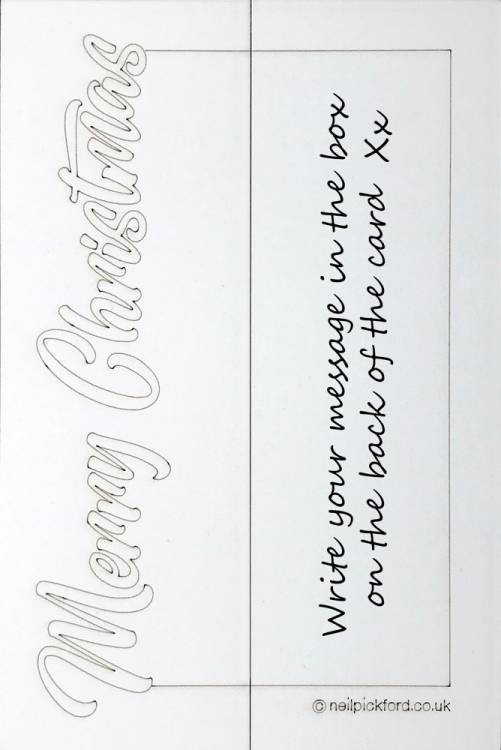 Merry Christmas
Write your message in the box
on the back of the card Xx
© neilpickford.co.uk